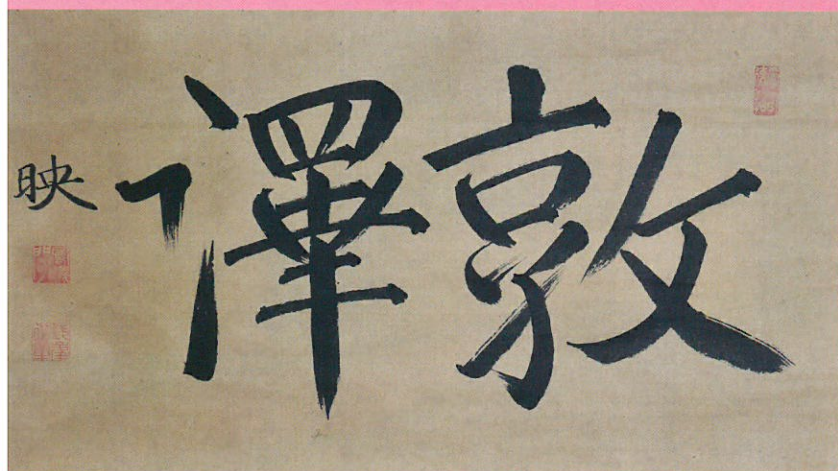 敦澤
映